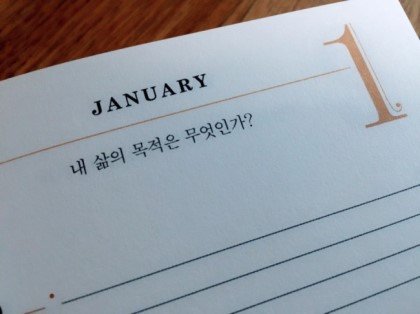 JANUARY
1
내 삶의 목적은 무엇인가?